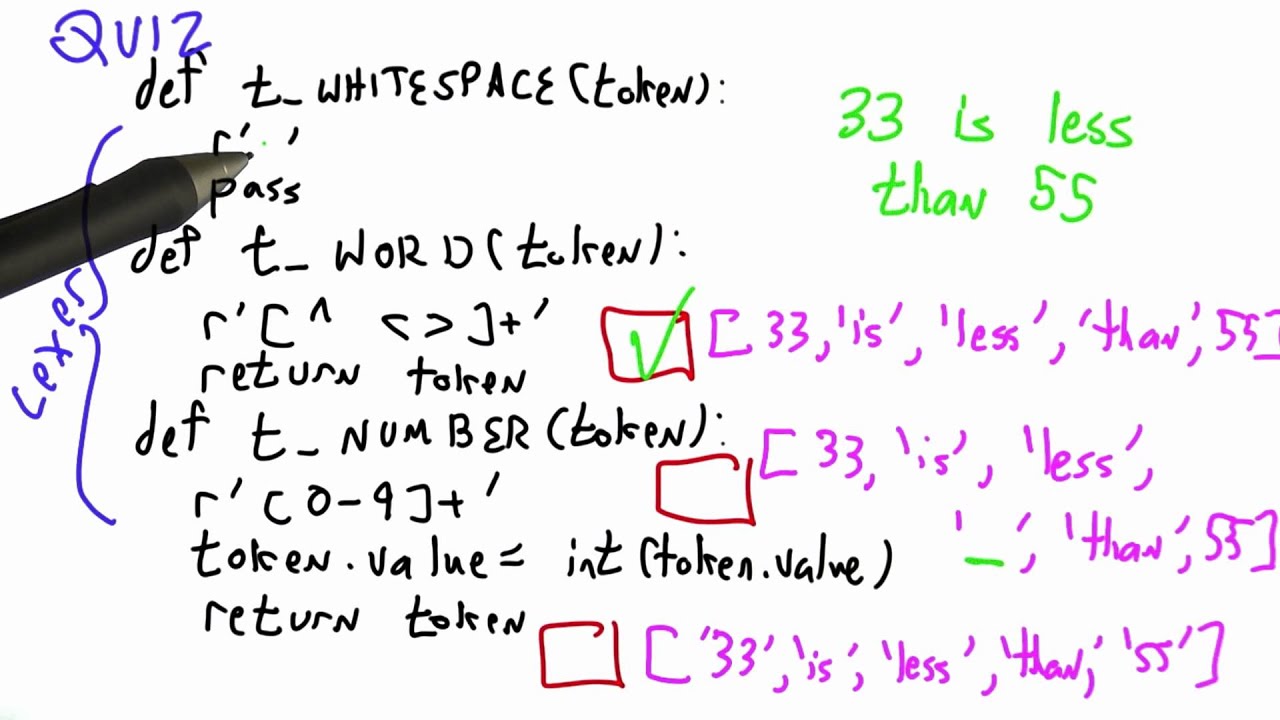 QUIZ
def t_WHITESPACE(token):
r' '
pass
def t_WORD(token):
r'[^ <>]+'
return token
def t_NUMBER(token):
r'[0-9]+'
token.value = int(token.value)
return token
Lexer
33 is less
than 55
[33,'is','less','than',55]
[33,'is','less',
'_','than',55]
['33','is','less','than','55']